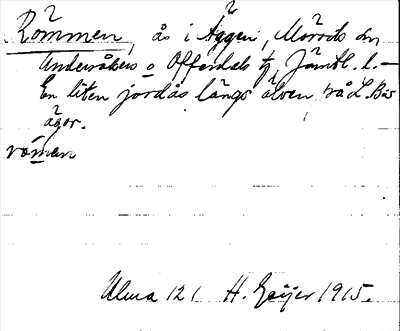 Römmen, ås i Äggen, Mörsils sn
Undersåkers o Offerdals tg, Jämtl. l. —
En liten jordås längs älven, på L. Bäs
ägor.
römen
Ulma 121 H. Geijer 1915.